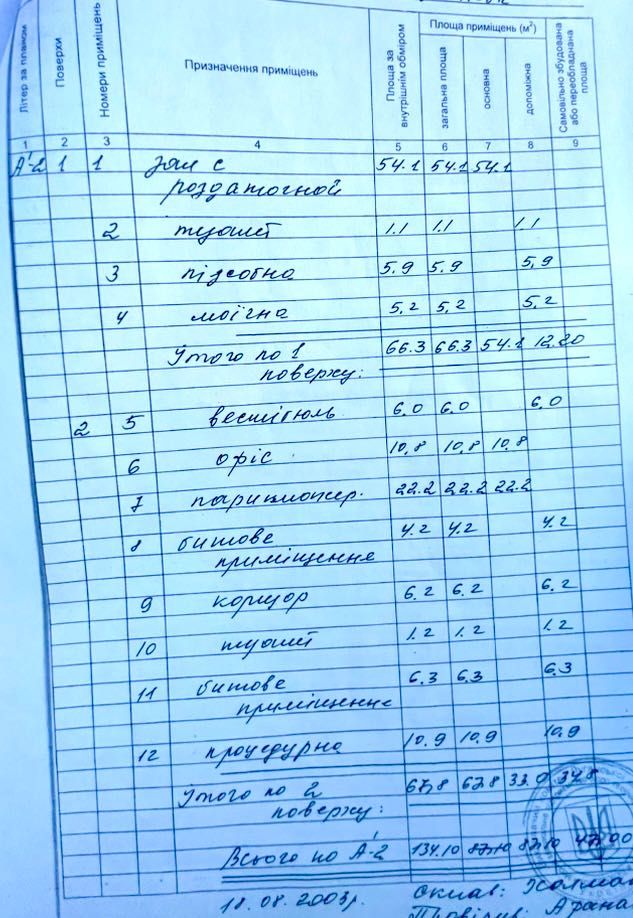 Літер за планом
Поверхи
Номери приміщень
Призначення приміщень
Площа за внутрішнім обміром
Площа приміщень (м²)
загальна площа
основна
допоміжна
Самовільно збудована або переобладнана площа
1 2 3 4 5 6 7 8 9
А'-2 1 1 зал с 54.1 54.1 54.1
роздаточной
2 туалет 1.1 1.1 1.1
3 підсобна 5.9 5.9 5,9
4 моїчна 5,2 5,2 5.2
Ітого по 1 66.3 66.3 54.1 12.20
поверху:
2 5 вестибюль 6.0 6.0 6.0
6 офіс 10,8 10,8 10,8
7 парикмахер. 22.2 22.2 22.2
8 битове 4.2 4.2 4.2
приміщення
9 коридор 6.2 6.2 6.2
10 туалет 1.2 1.2 1.2
11 битове 6.3 6.3 6.3
приміщення
12 процедурна 10.9 10.9 10.9
Ітого по 2 67,8 67.8 33.0 34.8
поверху:
Всього по А'-2 134.10 87.10 47.00
18.08.2003р.
Склав: